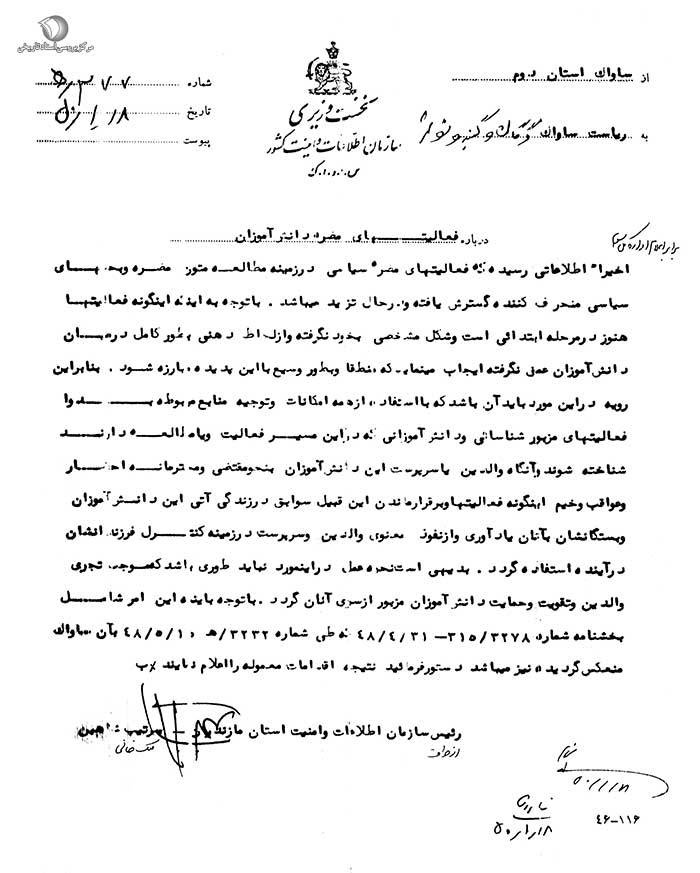 مرکز بررسی اسناد تاریخی
از ساواک استان دوم
به ریاست ساواک گرگان و گنبد و نوشهر
نخست وزیری
سازمان اطلاعات و امنیت کشور
س.ا.و.ا.ک
شماره
تاریخ
پیوست
درباره فعالیتهای مضره دانش آموزان
برابر اعلام اداره کل سوم
اخیرا" اطلاعاتی رسیده که فعالیتهای مضره سیاسی درزمینه مطالعه متون مضره وبحثهای
سیاسی منحرف کننده گسترش یافته ودرحال تزید میباشد . باتوجه به اینکه اینگونه فعالیتها
هنوز درمرحله ابتدائی است وشکل مشخصی بخود نگرفته وازلحاظ ذهنی بطور کامل درمیان
دانش آموزان عمق نگرفته ایجاب مینماید که منطقا وبطور وسیع بااین پدیده مبارزه شود . بنابراین
رویه دراین مورد باید آن باشد که بااستفاده ازهمه امکانات وتوجیه منابع مربوطه بدوا
فعالیتهای مزبور شناسائی ودانش آموزانی که دراین مسیر فعالیت ویامطالعه دارند
شناخته شوند وآنگاه والدین یاسرپرست این دانش آموزان بنحومقتضی ومحترمانه احضار
وعواقب وخیم اینگونه فعالیتهاوبرقرارماندن این قبیل سوابق درزندگی آتی این دانش آموزان
وبستگانشان بآنان یادآوری وازنفوذ معنوی والدین وسرپرست درزمینه کنترل فرزندانشان
درآینده استفاده گردد . بدیهی است نحوه عمل دراینمورد نباید طوری باشد که موجب تجری
والدین وتقویت وحمایت دانش آموزان مزبور ازسوی آنان گردد . باتوجه باینکه این امر شامل
بخشنامه شماره ۳۱۵/۳۲۷۸ – ۴۸/۴/۳۱ که طی شماره ۳۲۳۲/ه ۴۸/۵/۱۰ بآن ساواک
منعکس گردیده نیز میباشد دستورفرمائید نتیجه اقدامات معموله را اعلام دارند
رئیس سازمان اطلاعات وامنیت استان مازندران – سرتیپ
ازطرف
۵۰/۱/۱۸
۴۶-۱۱۶
۱۸/۱/۵۰